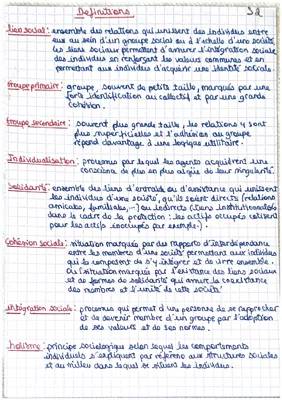 Définitions
lien social : ensemble des relations qui unissent des individus entre
eux au sein d'un groupe social ou à l'échelle d'une société.
les liens sociaux permettent d'assurer l'intégration sociale
des individus en renforçant les valeurs communes et en
permettant aux individus d'acquérir une identité sociale.
Groupe primaire : groupe, souvent de petite taille, marqués par une
forte identification au collectif et par une grande
cohésion.
groupe secondaire : souvent plus grande taille, les relations y sont
plus superficielles et l'adhésion au groupe
répond davantage à une logique utilitaire.
Individualisation : processus par lequel les agents acquièrent une
conscience de plus en plus aigüe de leur singularité.
Solidarité : ensemble des liens d'entraide ou d'assistance qui unissent
les individus d'une société, qu'ils soient directs (relations
amicales, familiales,...) ou indirects (liens institutionnalisés
dans le cadre de la protection : les actifs occupés cotisent
pour les actifs inoccupés par exemple).
Cohésion sociale : situation marquée par des rapports d'interdépendance
entre les membres d'une société permettant aux individus
qui la composent de s'y intégrer et de vivre ensemble.
ou situation marquée par l'existence des liens sociaux
et de formes de solidarité qui assure la coexistence
des membres et l'unité de cette société
intégration sociale : processus qui permet à une personne de se rapprocher
et de devenir membre d'un groupe par l'adoption
de ses valeurs et de ses normes.
holisme : principe sociologique selon lequel les comportements
individuels s'expliquent par référence aux structures sociales
et au milieu dans lequel se situent les individus.